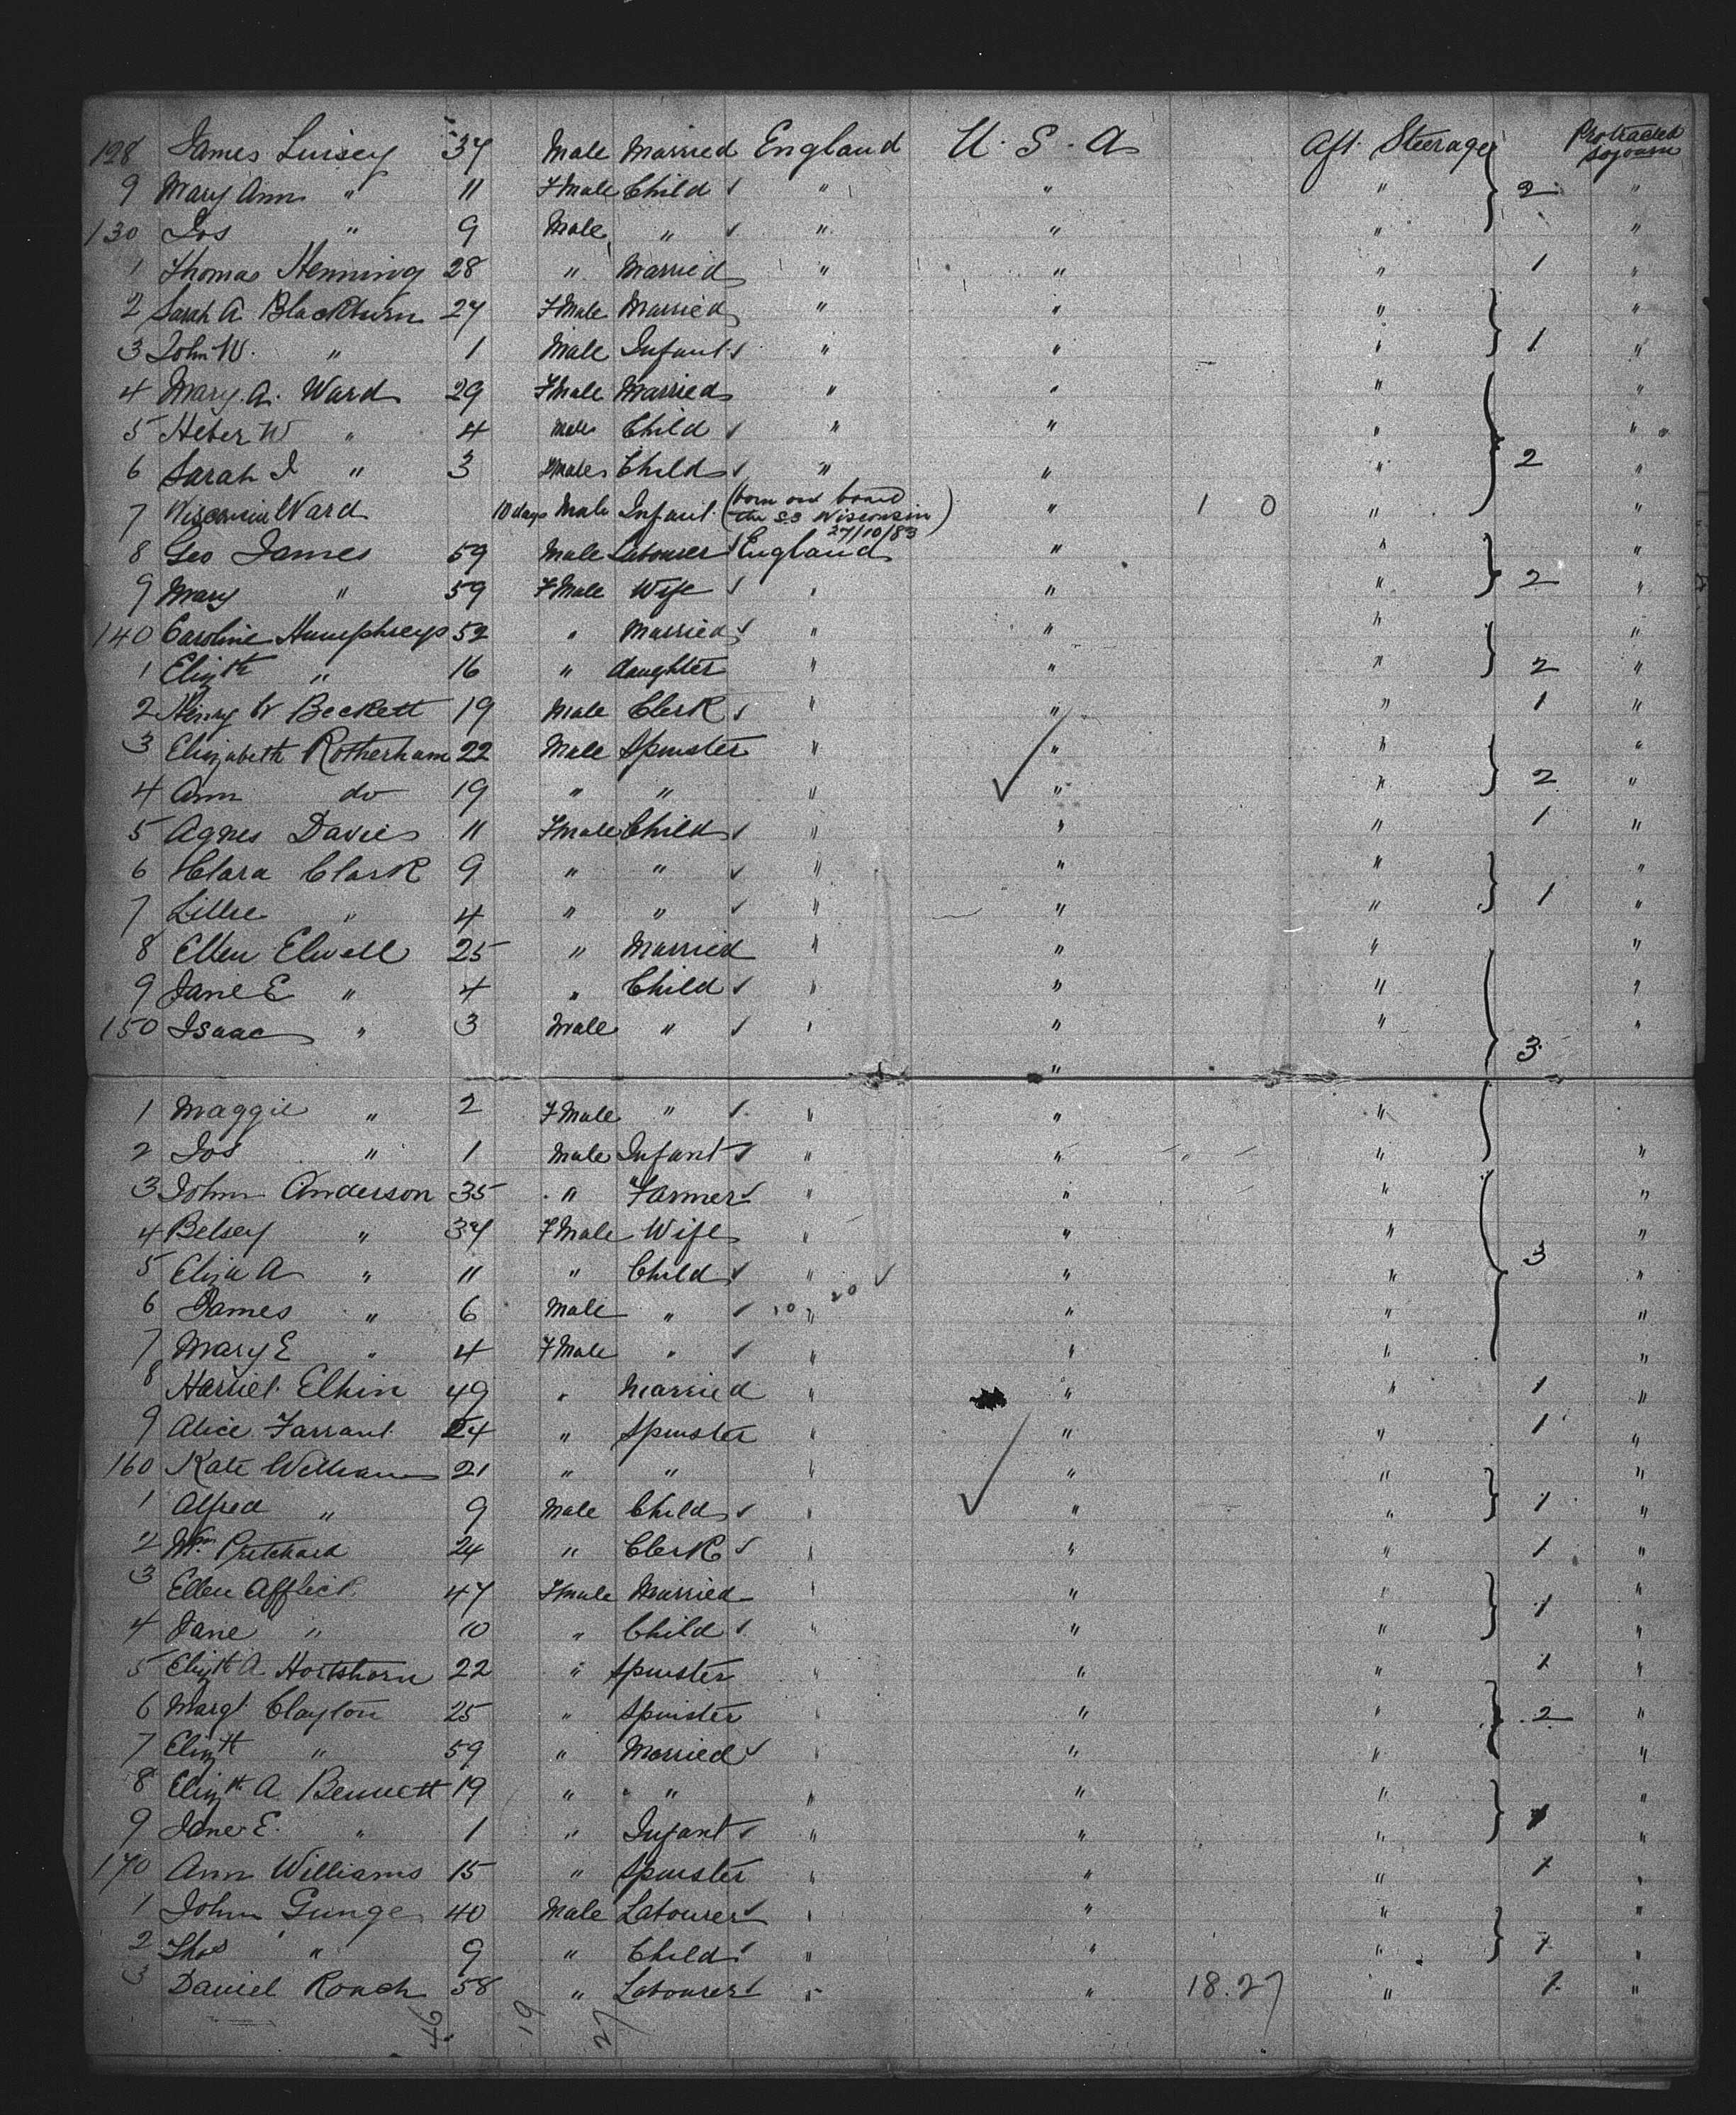 128 James Livisey 37 Male Married England U.S.A Aft. Steerage Protracted sojourn
9 Mary Ann " 11 FMale Child " " " 2 "
130 Jos " 9 Male " " " " "
1 Thomas Henning 28 " Married " " " 1 "
2 Sarah A Blackburn 27 FMale Married " " " "
3 John W. " 1 Male Infant " " " 1 "
4 Mary. A. Ward 29 FMale Married " " " "
5 Heber W " 4 Male Child " " " "
6 Sarah J " 3 Child " " " 2 "
7 Wisconsin Ward 10 days Male Infant (born on board the S.S Wisconsin 27/10/83) " 1 0 " "
8 Geo James 59 Male Labourer England " " "
9 Mary " 59 FMale Wife " " " 2 "
140 Caroline Humphreys 52 " Married " " " "
1 Elizth " 16 " daughter " " " 2 "
2 Henry W Beckett 19 Male Clerk " " " 1 "
3 Elizabeth Rotherham 22 Male Spinster " " " "
4 Ann do 19 " " " " " 2 "
5 Agnes Davies 11 FMale Child " " " 1 "
6 Clara Clark 9 " " " " " "
7 Lillie " 4 " " " " " 1 "
8 Ellen Elwell 25 " Married " " " "
9 Jane E " 4 " Child " " " "
150 Isaac " 3 Male " " " " "
" 3
1 Maggie " 2 FMale " " " "
2 Jos " 1 Male Infant " " " "
3 John Anderson 35 " Farmer " " " "
4 Betsey " 37 FMale Wife " " " "
5 Eliza A " 11 " Child " " " 3 "
6 James " 6 Male " 10 " 20 " " "
7 Mary E " 4 FMale " " " " "
8 Harriet Elkin 49 " Married " " " 1 "
9 Alice Farrant 24 " Spinster " " " 1 "
160 Kate Williams 21 " " " " " "
1 Alfred " 9 Male Child " " " 1 "
2 Wm Pritchard 24 " Clerk " " " 1 "
3 Ellen Affleck 47 FMale Married " " " "
4 Jane " 10 " Child " " " 1 "
5 Elizth A Hortshorn 22 " Spinster " " " 1 "
6 Margt Clayton 25 " Spinster " " " 2 "
7 Elizth " 59 " Married " " " "
8 Elizth A Bennett 19 " " " " " "
9 Jane E. " 1 " Infant " " " 1 "
170 Ann Williams 15 " Spinster " " " 1 "
1 John Gunge 40 Male Labourer " " " "
2 Thos " 9 " Child " " " 1 "
3 Daniel Roach 58 " Labourer " " 18.27 " 1 "
46 19 27